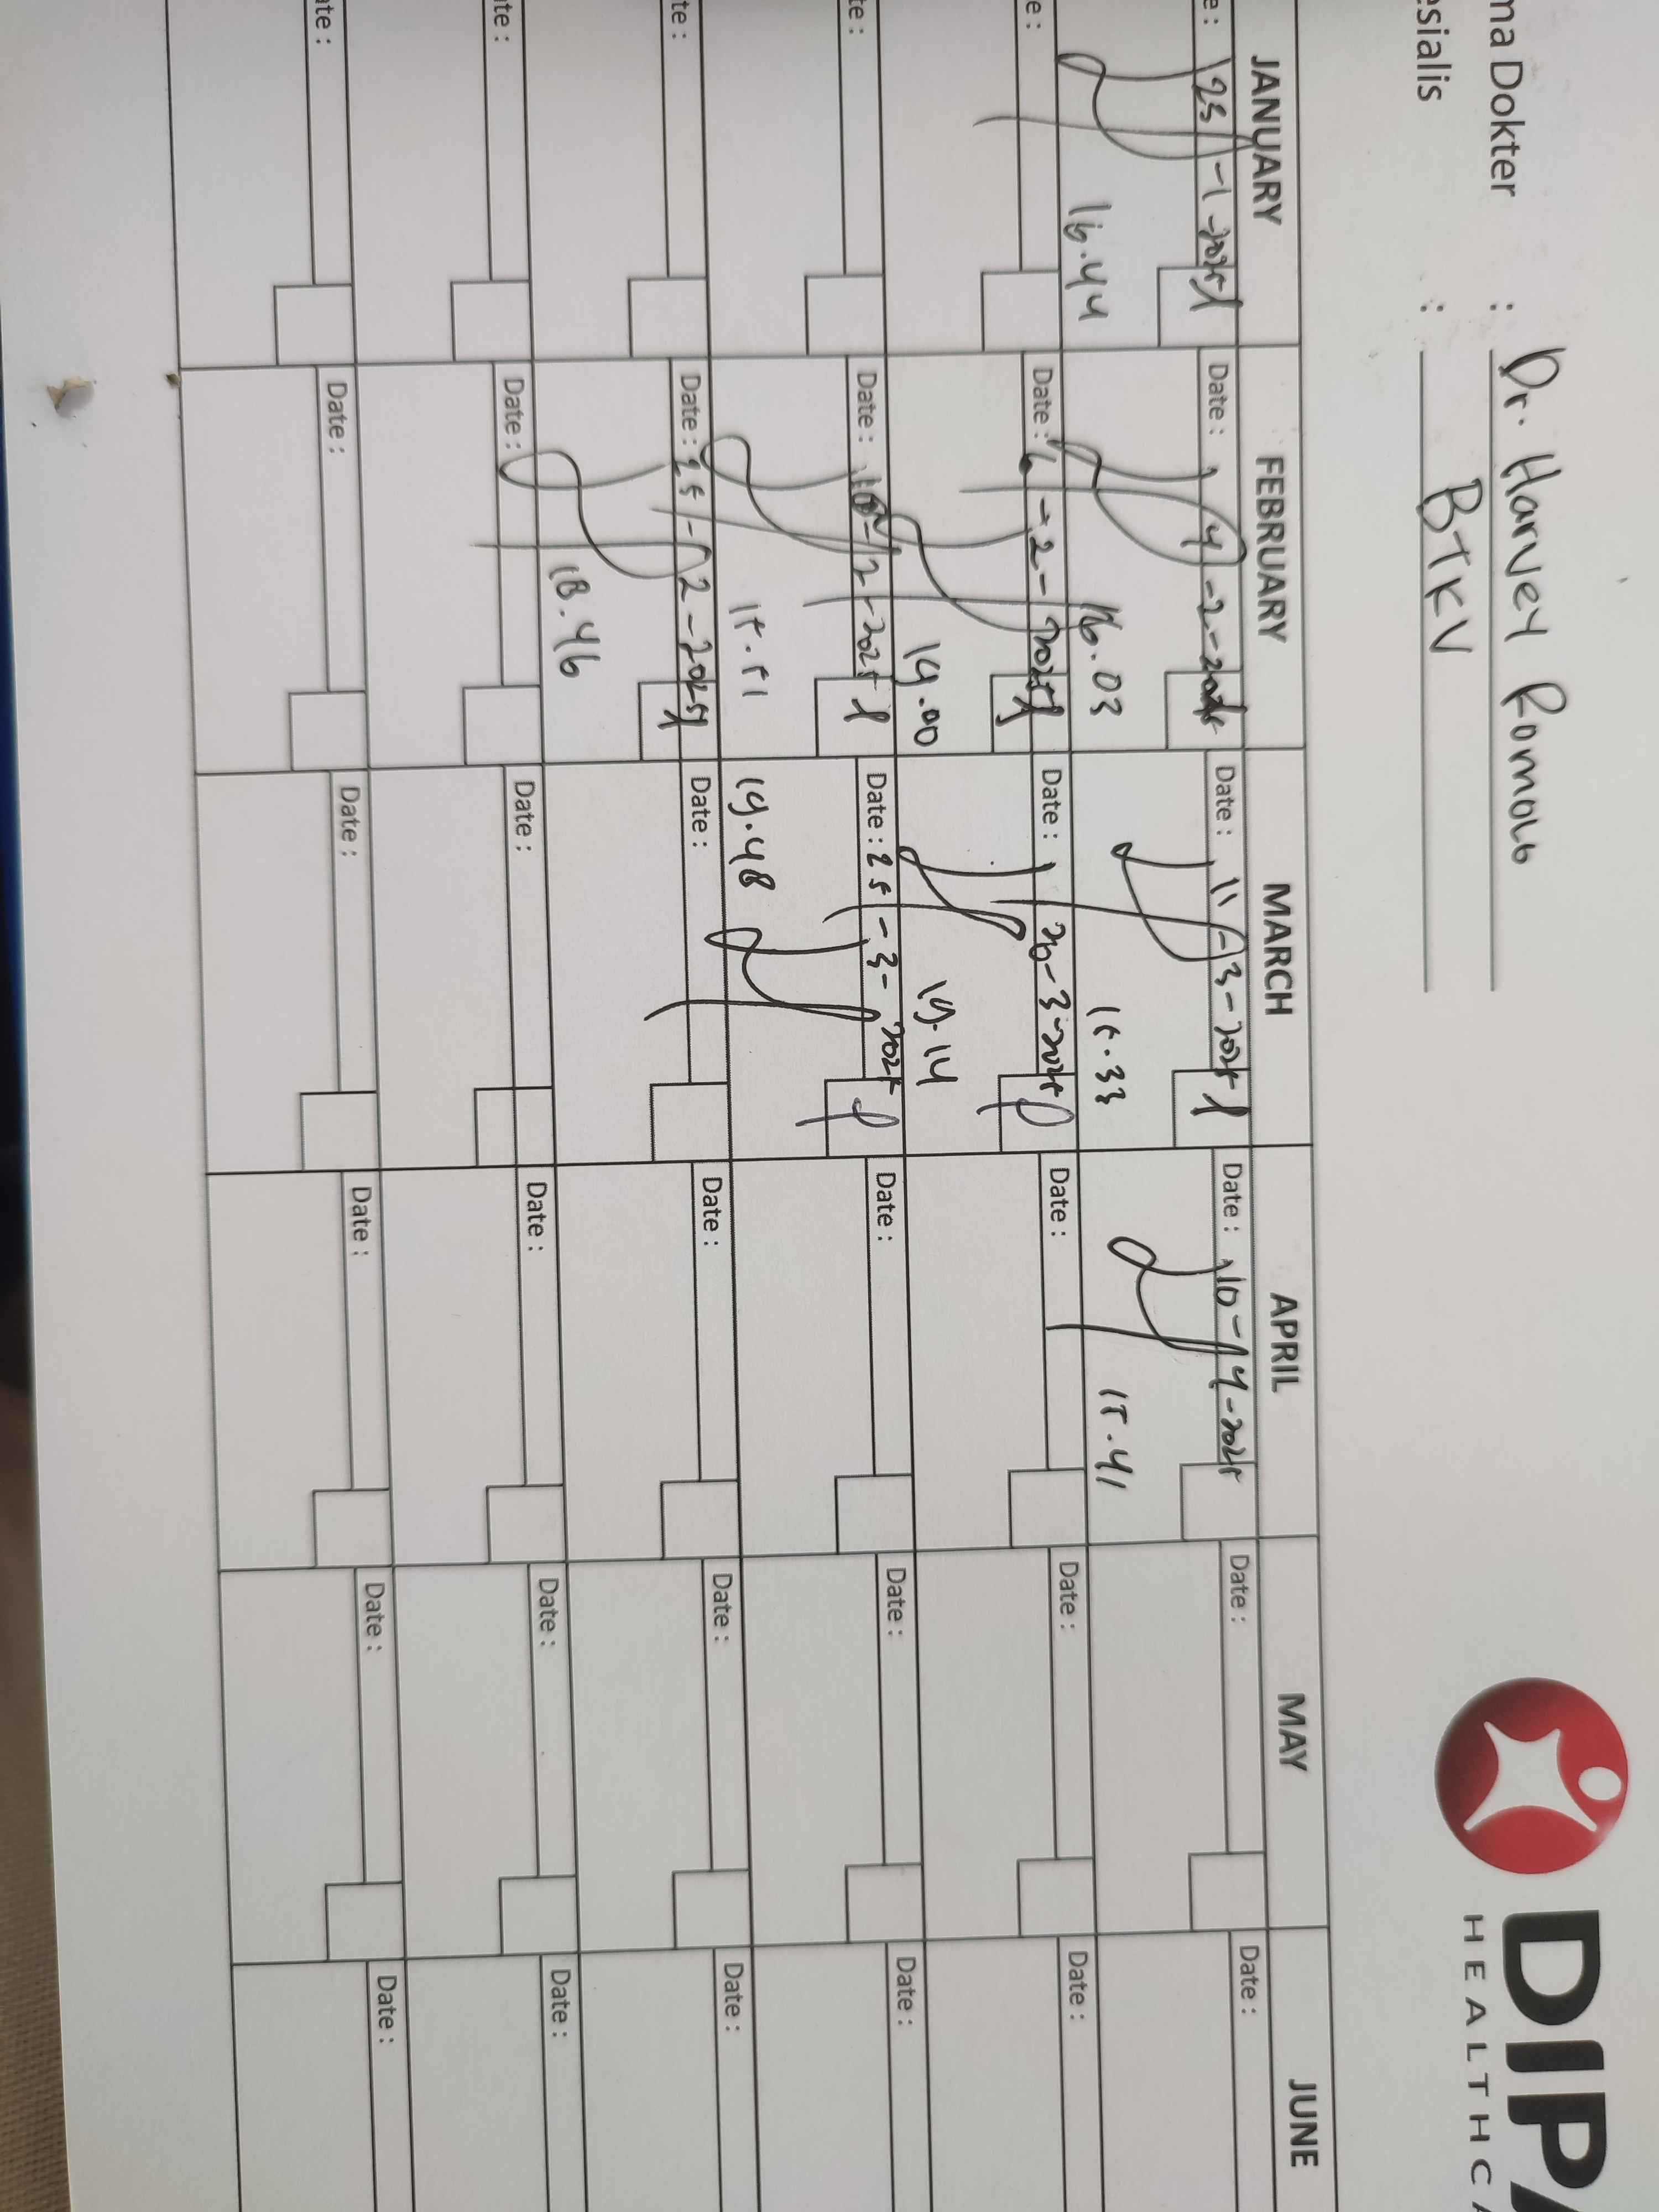 ma Dokter : Dr. Harvey Romolo
esialis : BTKV
DIPA
HEALTHCA
JANUARY FEBRUARY MARCH APRIL MAY JUNE
e : 23-1-2025 Date : 4-2-2025 Date : 11-3-2025 Date : 10-4-2025 Date : Date :
16.44 16.03 15.33 15.41
e : Date : -2-2025 Date : 20-3-2025 Date : Date : Date :
19.00 19.14
te : Date : 10-2-2025 Date : 25-3-2025 Date : Date : Date :
15.51 19.48
te : Date : 25-2-2025 Date : Date : Date : Date :
18.46
te : Date : Date : Date : Date : Date :
ate : Date : Date : Date : Date : Date :